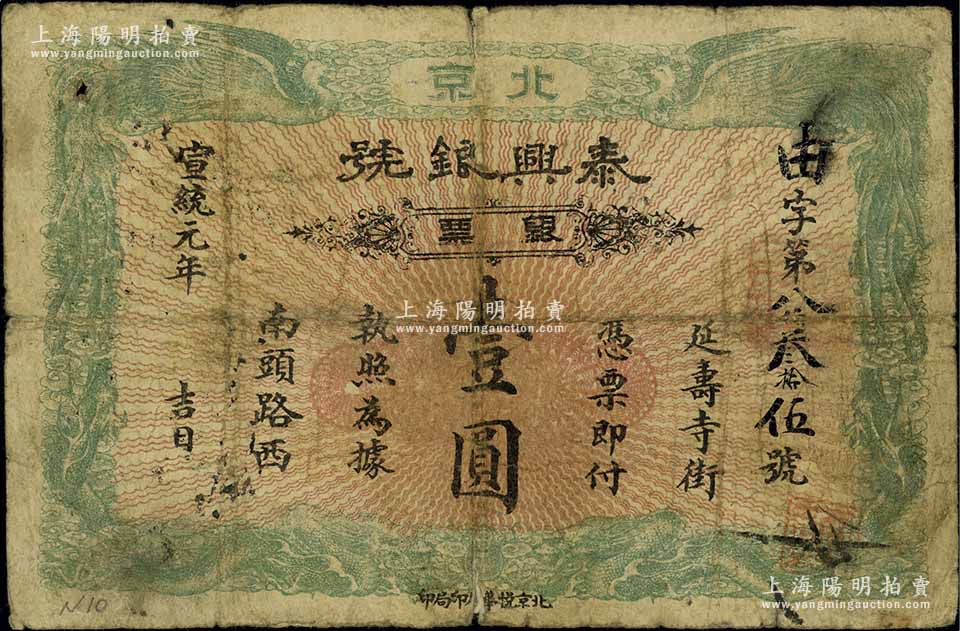 上海陽明拍賣
www.yangmingauction.com
北京
泰興銀號
銀票
由字第八佰叁拾伍號
延壽寺街
憑票即付
壹圓
執照為據
南頭路西
宣統元年 吉日
上海陽明拍賣
www.yangmingauction.com
北京 印局印
N10
上海陽明拍賣
www.yangmingauction.com